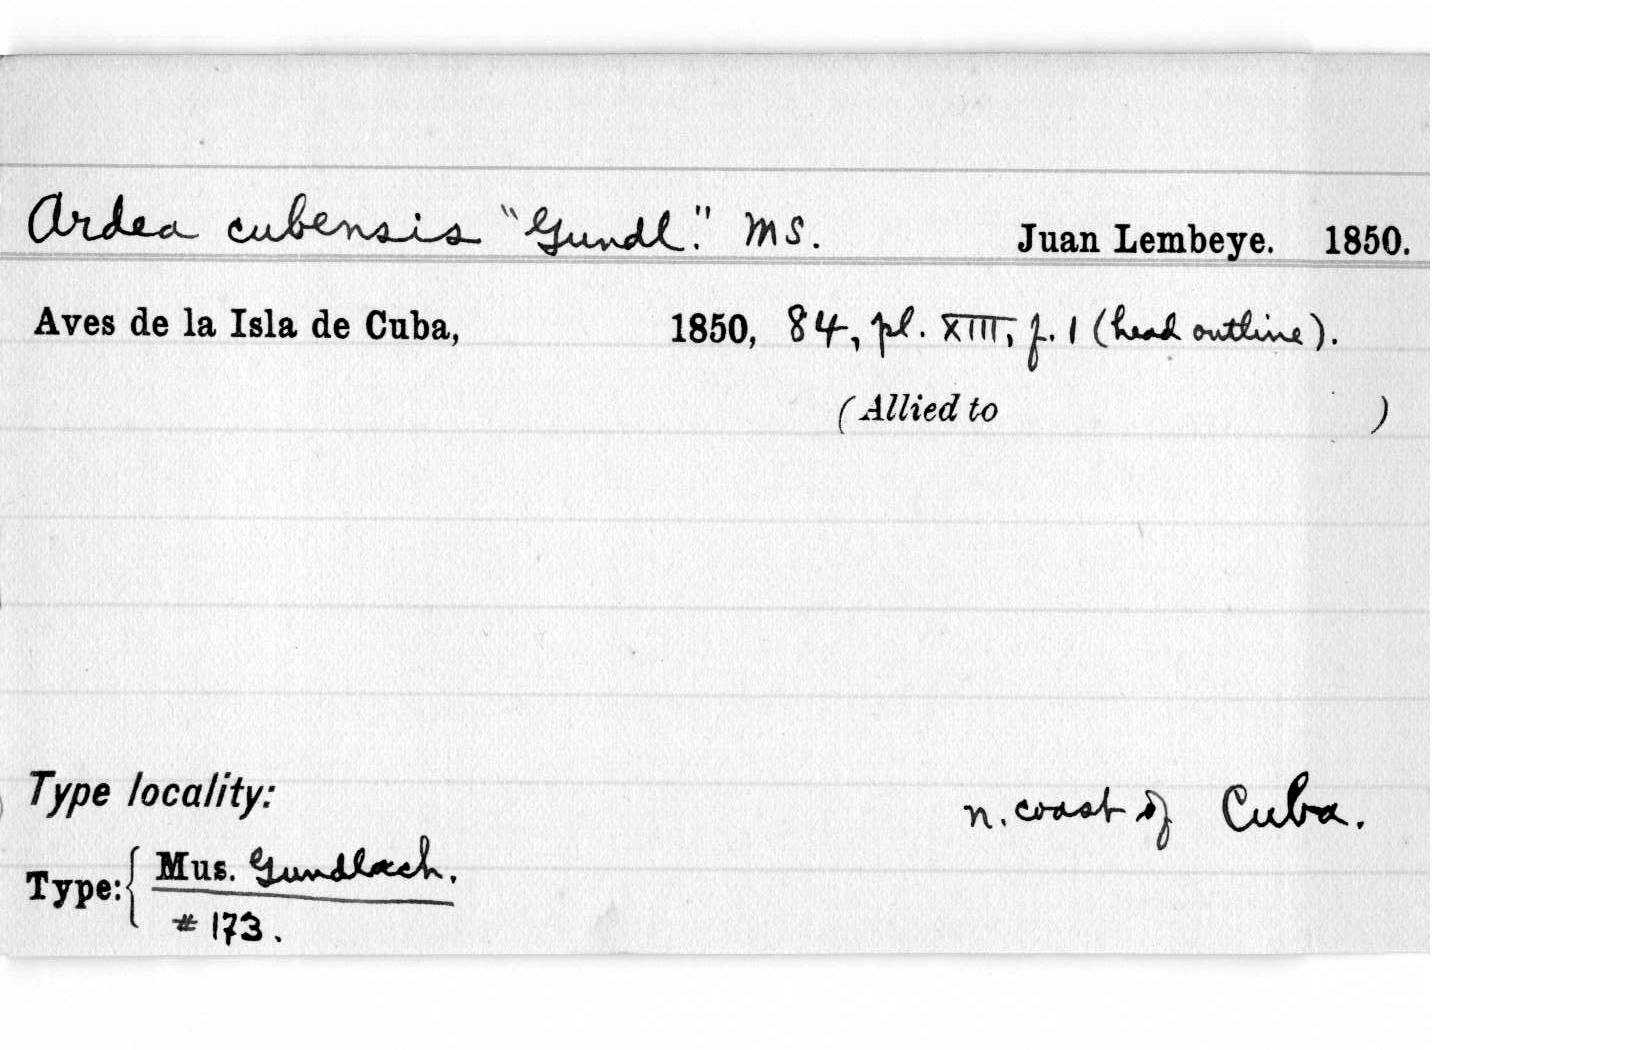 Ardea cubensis "Gundl." MS. Juan Lembeye. 1850.
Aves de la Isla de Cuba, 1850, 84, pl. XIII, f. 1 (head outline).
(Allied to )
Type locality: n. coast of Cuba.
Type: { Mus. Gundlach.
# 173.